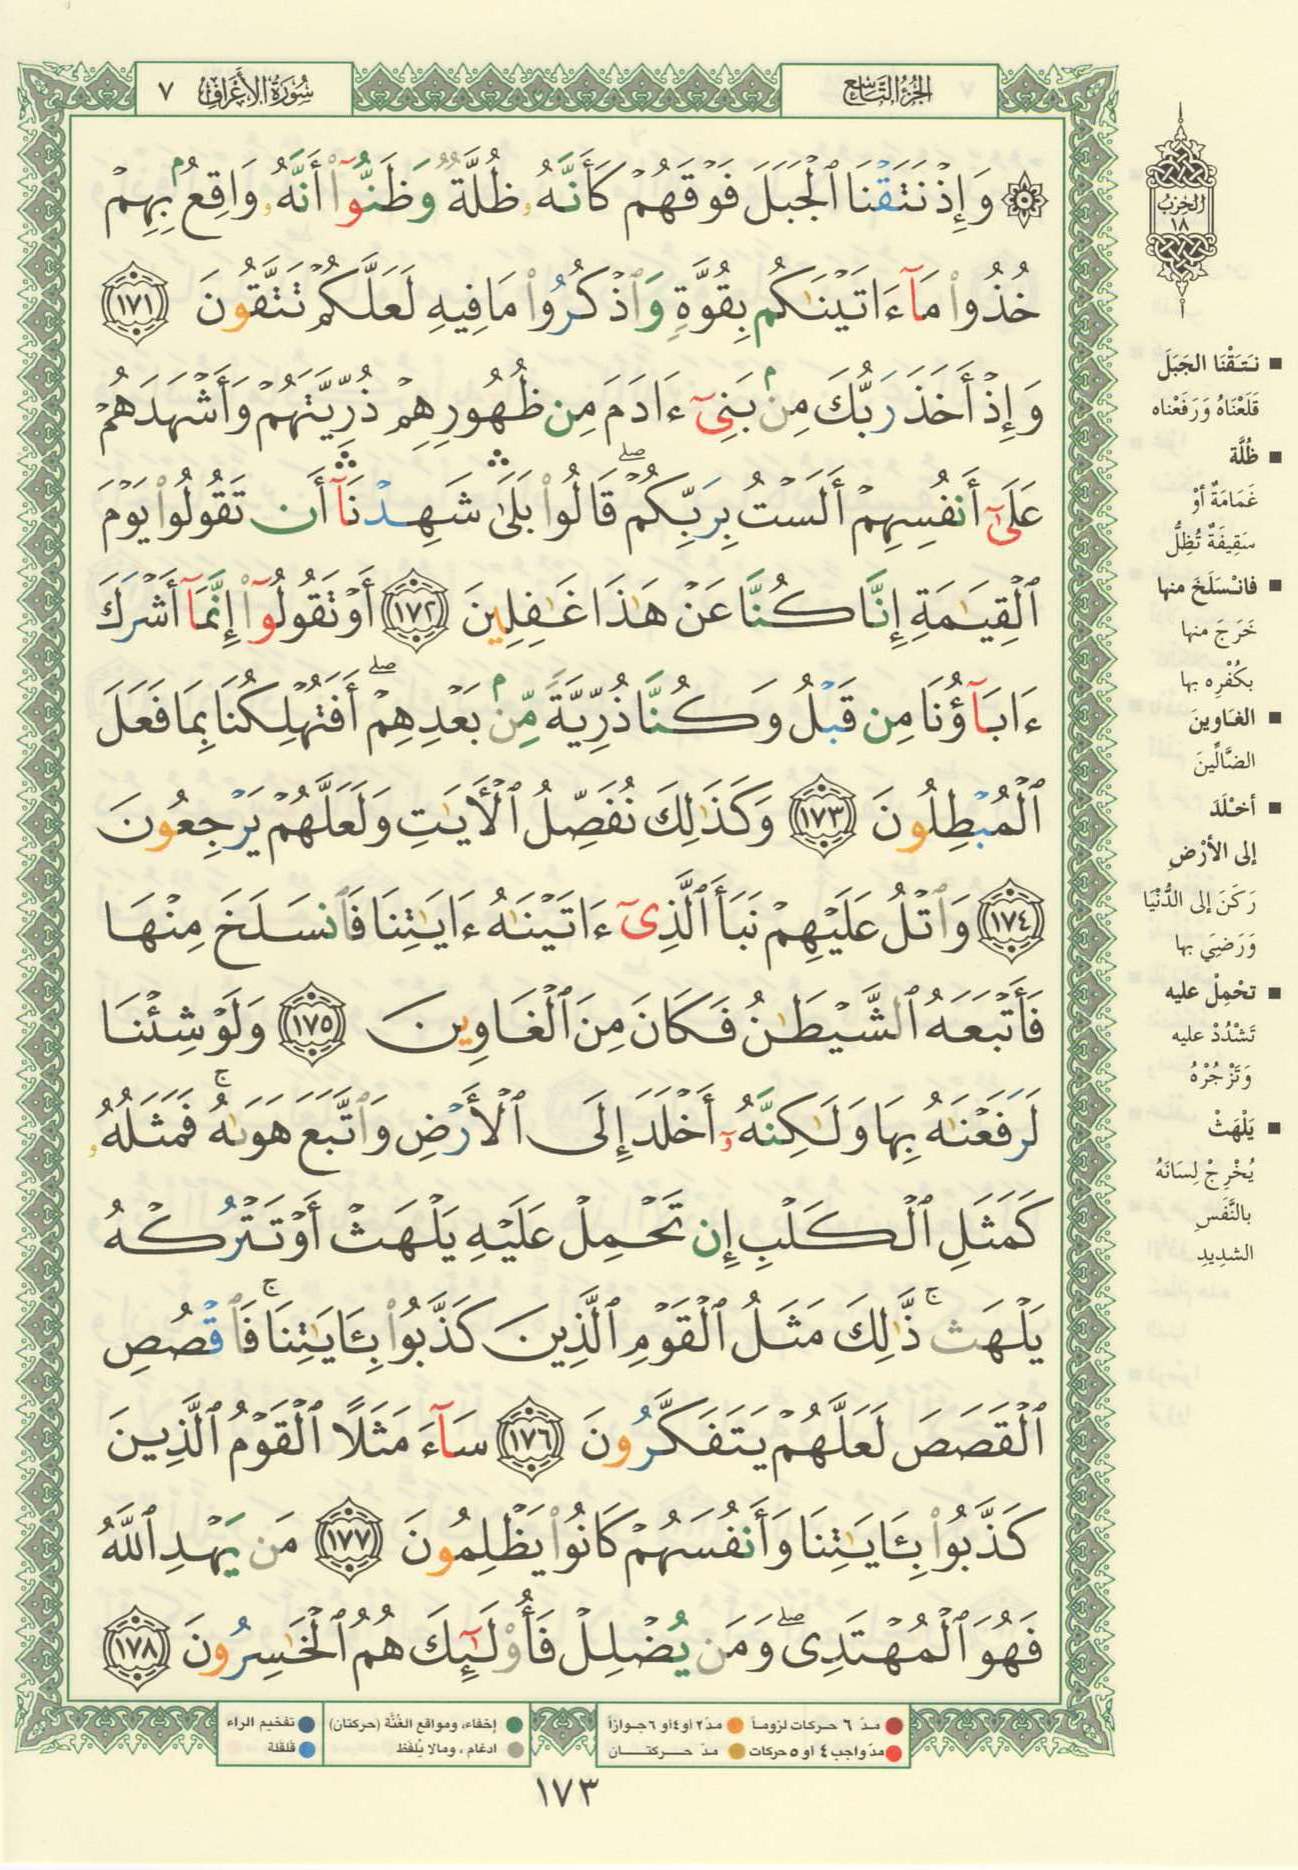 سُورَةُ الأَعْرَافِ ٧
الجُزْءُ التَّاسِعُ
۞ وَإِذْ نَتَقْنَا ٱلْجَبَلَ فَوْقَهُمْ كَأَنَّهُۥ ظُلَّةٌ وَظَنُّوٓا۟ أَنَّهُۥ وَاقِعٌۢ بِهِمْ
خُذُوا۟ مَآ ءَاتَيْنَـٰكُم بِقُوَّةٍ وَٱذْكُرُوا۟ مَا فِيهِ لَعَلَّكُمْ تَتَّقُونَ ١٧١
وَإِذْ أَخَذَ رَبُّكَ مِنۢ بَنِىٓ ءَادَمَ مِن ظُهُورِهِمْ ذُرِّيَّتَهُمْ وَأَشْهَدَهُمْ
عَلَىٰٓ أَنفُسِهِمْ أَلَسْتُ بِرَبِّكُمْ ۖ قَالُوا۟ بَلَىٰ ۛ شَهِدْنَآ ۛ أَن تَقُولُوا۟ يَوْمَ
ٱلْقِيَـٰمَةِ إِنَّا كُنَّا عَنْ هَـٰذَا غَـٰفِلِينَ ١٧٢ أَوْ تَقُولُوٓا۟ إِنَّمَآ أَشْرَكَ
ءَابَآؤُنَا مِن قَبْلُ وَكُنَّا ذُرِّيَّةً مِّنۢ بَعْدِهِمْ ۖ أَفَتُهْلِكُنَا بِمَا فَعَلَ
ٱلْمُبْطِلُونَ ١٧٣ وَكَذَٰلِكَ نُفَصِّلُ ٱلْأَيَـٰتِ وَلَعَلَّهُمْ يَرْجِعُونَ
١٧٤ وَٱتْلُ عَلَيْهِمْ نَبَأَ ٱلَّذِىٓ ءَاتَيْنَـٰهُ ءَايَـٰتِنَا فَٱنسَلَخَ مِنْهَا
فَأَتْبَعَهُ ٱلشَّيْطَـٰنُ فَكَانَ مِنَ ٱلْغَاوِينَ ١٧٥ وَلَوْ شِئْنَا
لَرَفَعْنَـٰهُ بِهَا وَلَـٰكِنَّهُۥٓ أَخْلَدَ إِلَى ٱلْأَرْضِ وَٱتَّبَعَ هَوَىٰهُ ۚ فَمَثَلُهُۥ
كَمَثَلِ ٱلْكَلْبِ إِن تَحْمِلْ عَلَيْهِ يَلْهَثْ أَوْ تَتْرُكْهُ
يَلْهَث ۚ ذَّٰلِكَ مَثَلُ ٱلْقَوْمِ ٱلَّذِينَ كَذَّبُوا۟ بِـَٔايَـٰتِنَا ۚ فَٱقْصُصِ
ٱلْقَصَصَ لَعَلَّهُمْ يَتَفَكَّرُونَ ١٧٦ سَآءَ مَثَلًا ٱلْقَوْمُ ٱلَّذِينَ
كَذَّبُوا۟ بِـَٔايَـٰتِنَا وَأَنفُسَهُمْ كَانُوا۟ يَظْلِمُونَ ١٧٧ مَن يَهْدِ ٱللَّهُ
فَهُوَ ٱلْمُهْتَدِى ۖ وَمَن يُضْلِلْ فَأُو۟لَـٰٓئِكَ هُمُ ٱلْخَـٰسِرُونَ ١٧٨
الحِزْبُ
١٨
■ نَتَقْنَا الجَبَلَ
قَلَعْنَاهُ وَرَفَعْناه
■ ظُلَّة
غَمَامَةٌ أوْ
سَقِيفَةٌ تُظِلُّ
■ فانْسَلَخَ منها
خَرَجَ منها
بكُفْرِه بها
■ الغَاوِينَ
الضَّالِّينَ
■ أخْلَدَ
إلى الأرْضِ
رَكَنَ إلى الدُّنْيَا
وَرَضِيَ بها
■ تَحْمِلْ عليه
تَشْدُدْ عليه
وَتَزْجُرْهُ
■ يَلْهَثْ
يُخْرِجْ لِسَانَهُ
بالنَّفَسِ
الشدِيدِ
مدّ ٦ حركات لزوماً
مدّ ٢ أو ٤ أو ٦ جوازاً
مدّ واجب ٤ أو ٥ حركات
مدّ حركتان
إخفاء، ومواقع الغُنَّة (حركتان)
ادغام، ومالا يُلفظ
تفخيم الراء
قلقلة
١٧٣